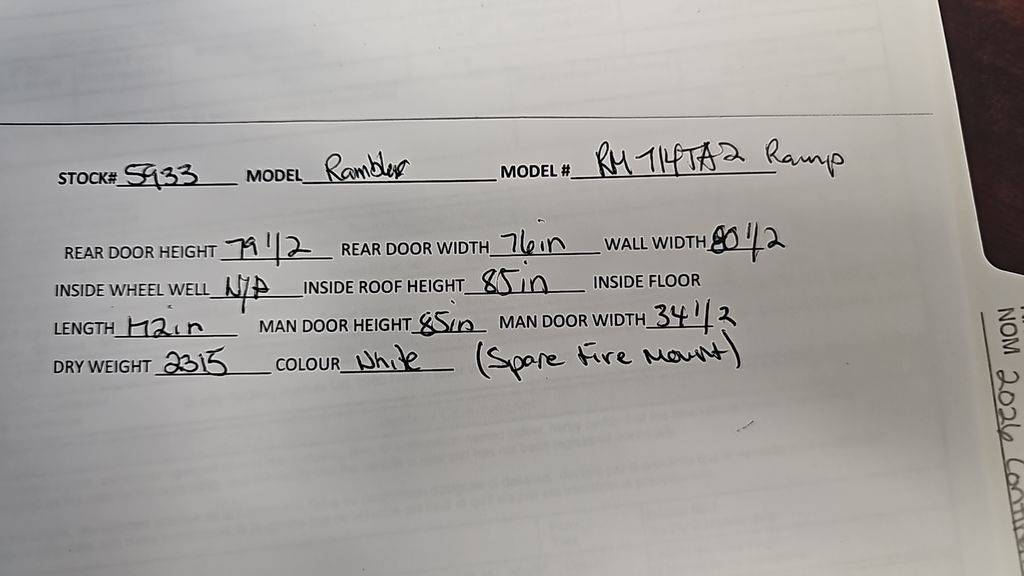 STOCK# 5933 MODEL Rambler MODEL # RM 714TA2 Ramp
REAR DOOR HEIGHT 79 1/2 REAR DOOR WIDTH 76in WALL WIDTH 80 1/2
INSIDE WHEEL WELL N/A INSIDE ROOF HEIGHT 85in INSIDE FLOOR
LENGTH 172in MAN DOOR HEIGHT 85in MAN DOOR WIDTH 34 1/2
DRY WEIGHT 2315 COLOUR White (Spare Tire Mount)
NOM 2026